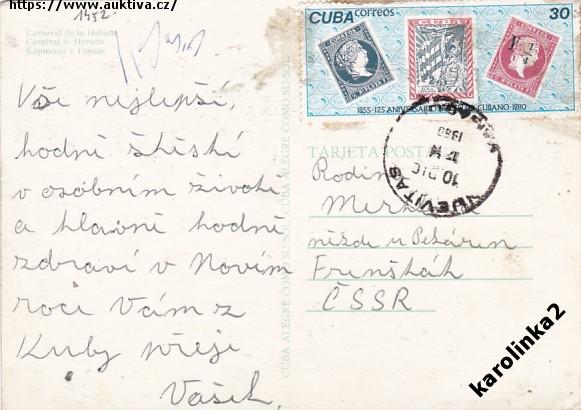 https://www.auktiva.cz/
1452.
Carnaval de la Habana
Carnival in Havana
Карнавал в Гаване
Vše nejlepší,
hodně štěstí
v osobním životě
a hlavně hodně
zdraví v Novém
roce Vám z
Kuby přeje
Vašek.
CUBA ALEGRE COMO SU SOL
CUBA CORREOS 30
1855-125 ANIVERSARIO CUBANO-1980
NUEVITAS
10 DIC
1980
TARJETA POSTAL
Rodina
někde u Pekáren
Frenštát
ČSSR
karolinka2